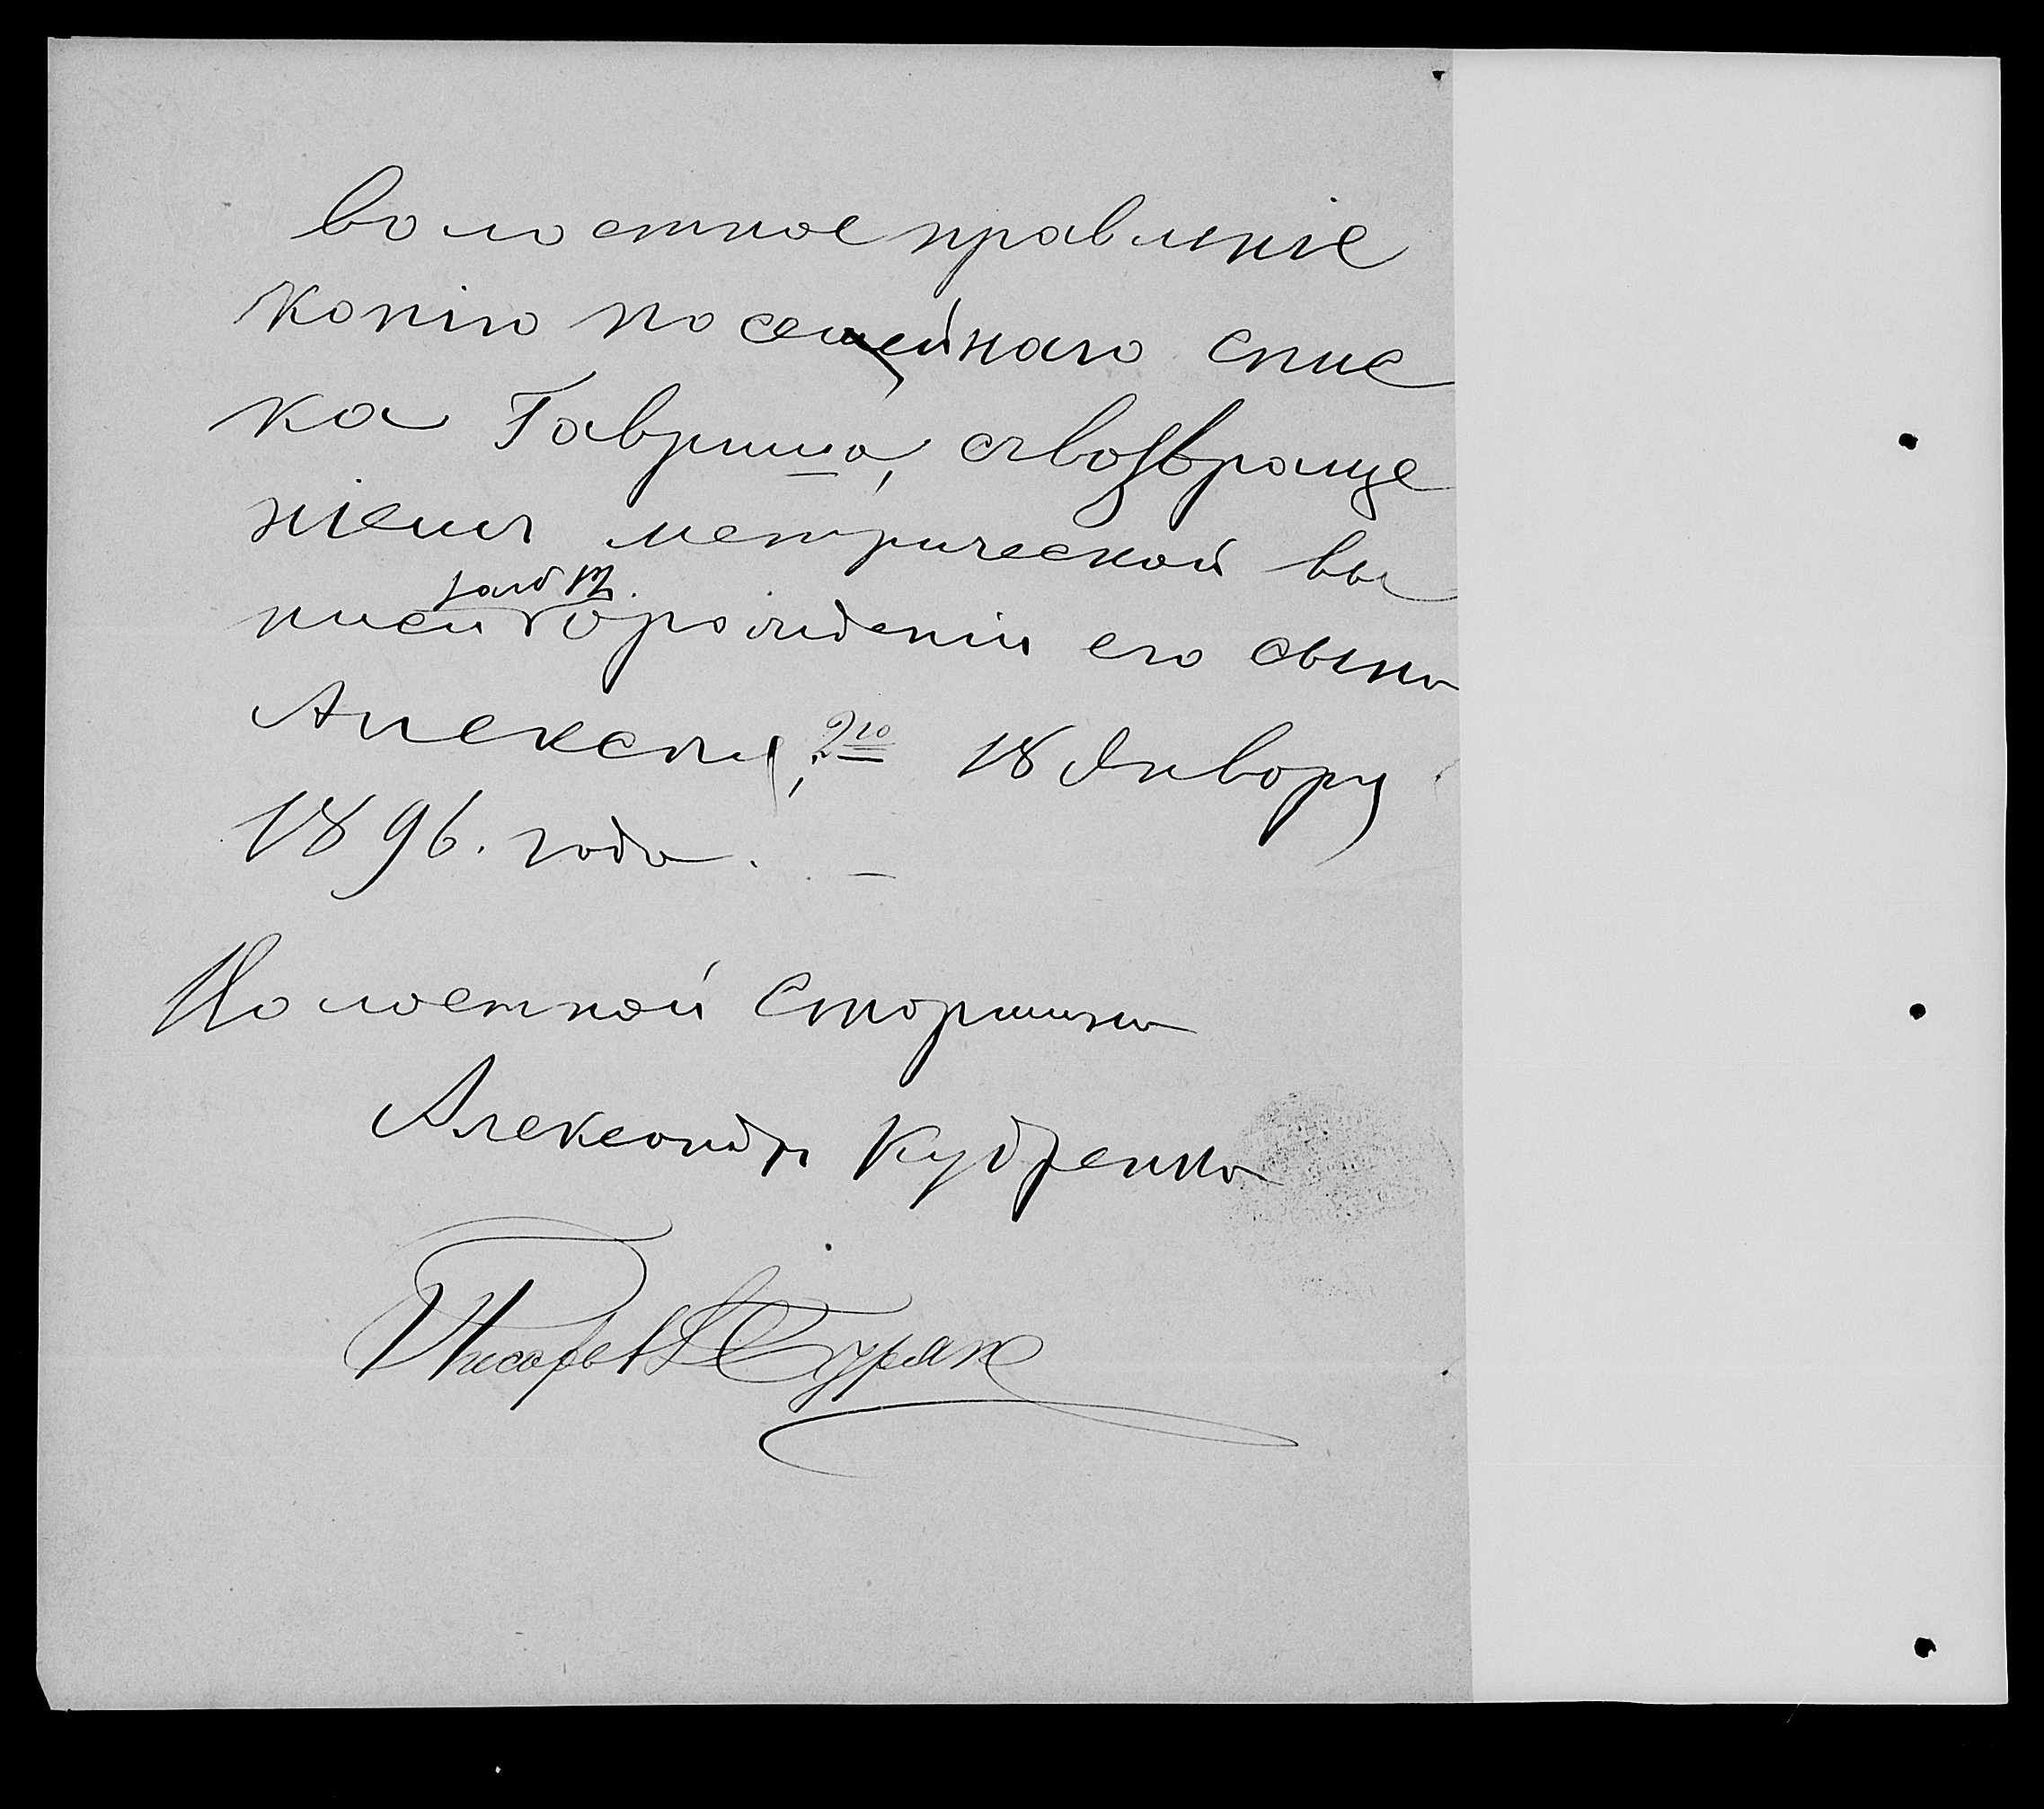 волостное правленіе
копію посемейнаго спис
ка Гавриша, съ возвраще
ніемъ метрической вы
за № 12.
писи о рожденіи его сына
Алексея, 2го 18 Января
1896. года. —
Волостной Старшина
Александръ Кудренко
Писарь Буряк